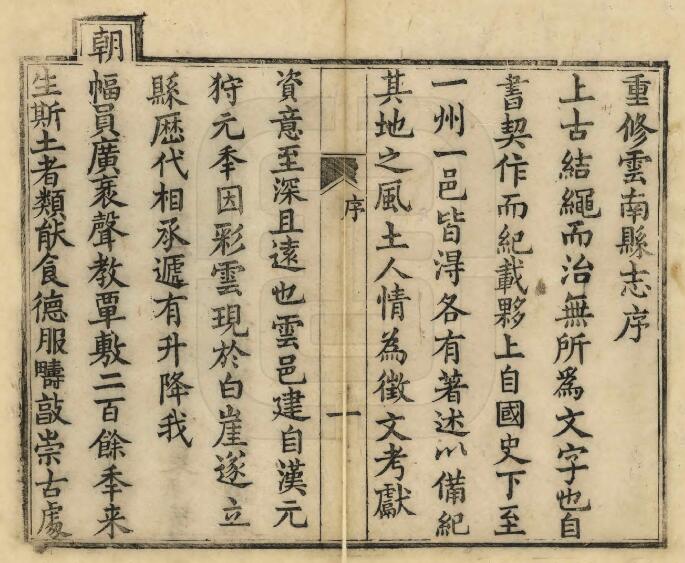 重修雲南縣志序
上古結繩而治無所爲文字也自
書契作而紀載夥上自國史下至
一州一邑皆得各有著述以備紀
其地之風土人情為徵文考獻
序
一
資意至深且遠也雲邑建自漢元
狩元年因彩雲現於白崖遂立
縣歷代相承遞有升降我
朝幅員廣袤聲教覃敷二百餘年来
生斯土者類能食德服疇敲崇古處